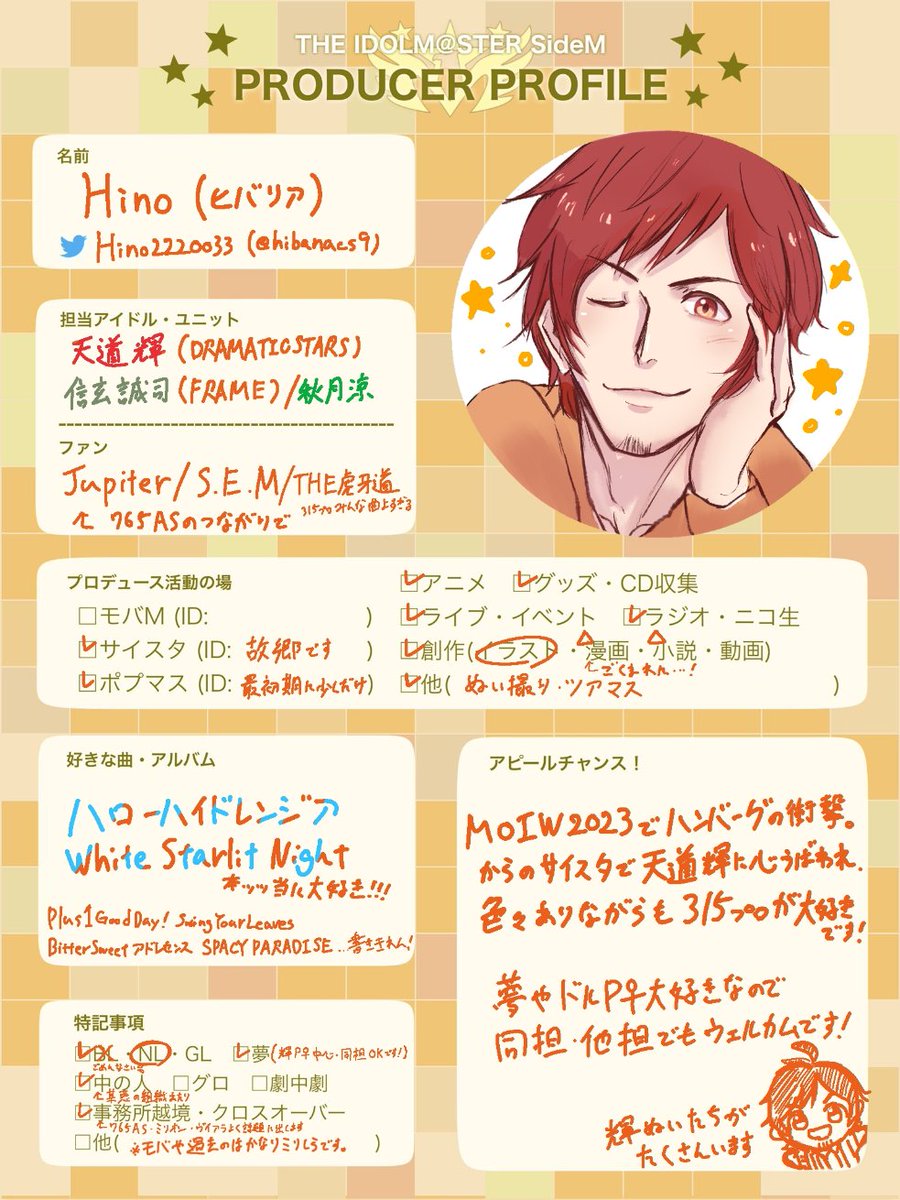 THE IDOLM@STER SideM
PRODUCER PROFILE
名前
Hino (ヒバリア)
Hino2220033 (@hibanacs9)
担当アイドル・ユニット
天道輝 (DRAMATICSTARS)
信玄誠司 (FRAME) / 秋月涼
ファン
Jupiter / S.E.M / THE虎牙道
315プロみんな曲よすぎる
765ASのつながりで
プロデュース活動の場
アニメ グッズ・CD収集
モバM (ID: )
ライブ・イベント ラジオ・ニコ生
サイスタ (ID: 故郷です )
創作(イラスト・漫画・小説・動画)
ごくまれに…!
ポプマス (ID: 最初期に少しだけ)
他( ぬい撮り・ツアマス )
好きな曲・アルバム
ハローハイドレンジア
White Starlit Night
本ッッ当に大好き!!!
Plus 1 Good Day! Swing Your Leaves
BitterSweetアドレセンス SPACY PARADISE …書ききれん!
アピールチャンス！
MOIW2023でハンバーグの衝撃。
からのサイスタで天道輝に心うばわれ、
色々ありながらも315プロが大好き
です!
夢やドルP♀大好きなので
同担・他担でもウェルカムです!
輝ぬいたちが
たくさんいます
特記事項
BL・NL・GL 夢(輝P♀中心・同担OKです!)
ごめんなさい
中の人 グロ 劇中劇
事務所越境・クロスオーバー
765AS・ミリオン・ヴイアラよく話題に出します
他( ※モバや過去のはかなりミリしらです。 )